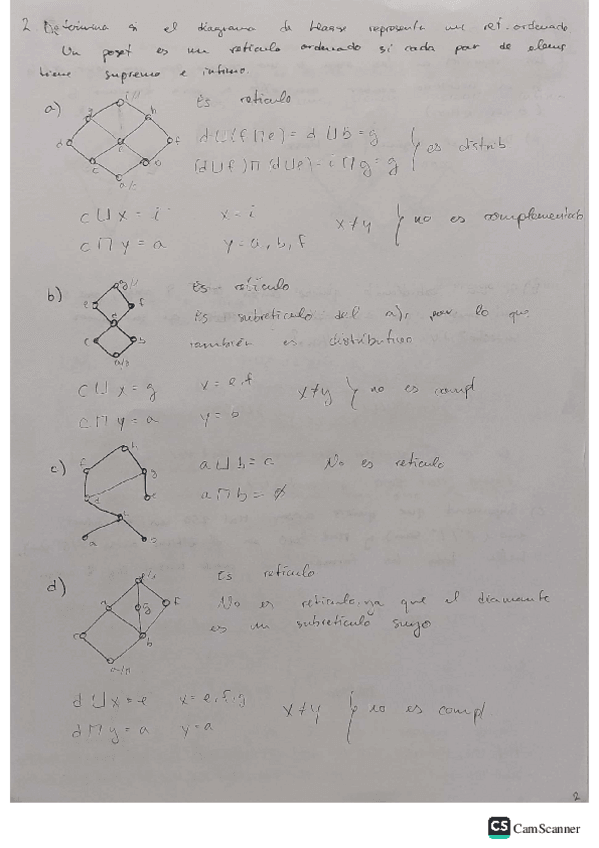 2 Determina si el diagrama de Hasse representa un ret. ordenado
Un poset es un retículo ordenado si cada par de elems
tiene supremo e ínfimo.
a)
Es retículo
d ⊔ (f ⊓ e) = d ⊔ b = g
(d ⊔ f) ⊓ (d ⊔ e) = i ⊓ g = g
es distrib
c ⊔ x = i x = i
c ⊓ y = a y = a, b, f
x ≠ y no es complementado
b)
Es retículo
Es subretículo del a), por lo que
también es distributivo
c ⊔ x = g x = e, f
c ⊓ y = a y = b
x ≠ y no es compl
c)
a ⊔ b = c No es retículo
a ⊓ b = ∅
d)
Es retículo
No es retículo ya que el diamante
es un subretículo suyo
d ⊔ x = e x = e, f, g
d ⊓ y = a y = a
x ≠ y no es compl
2
CS CamScanner